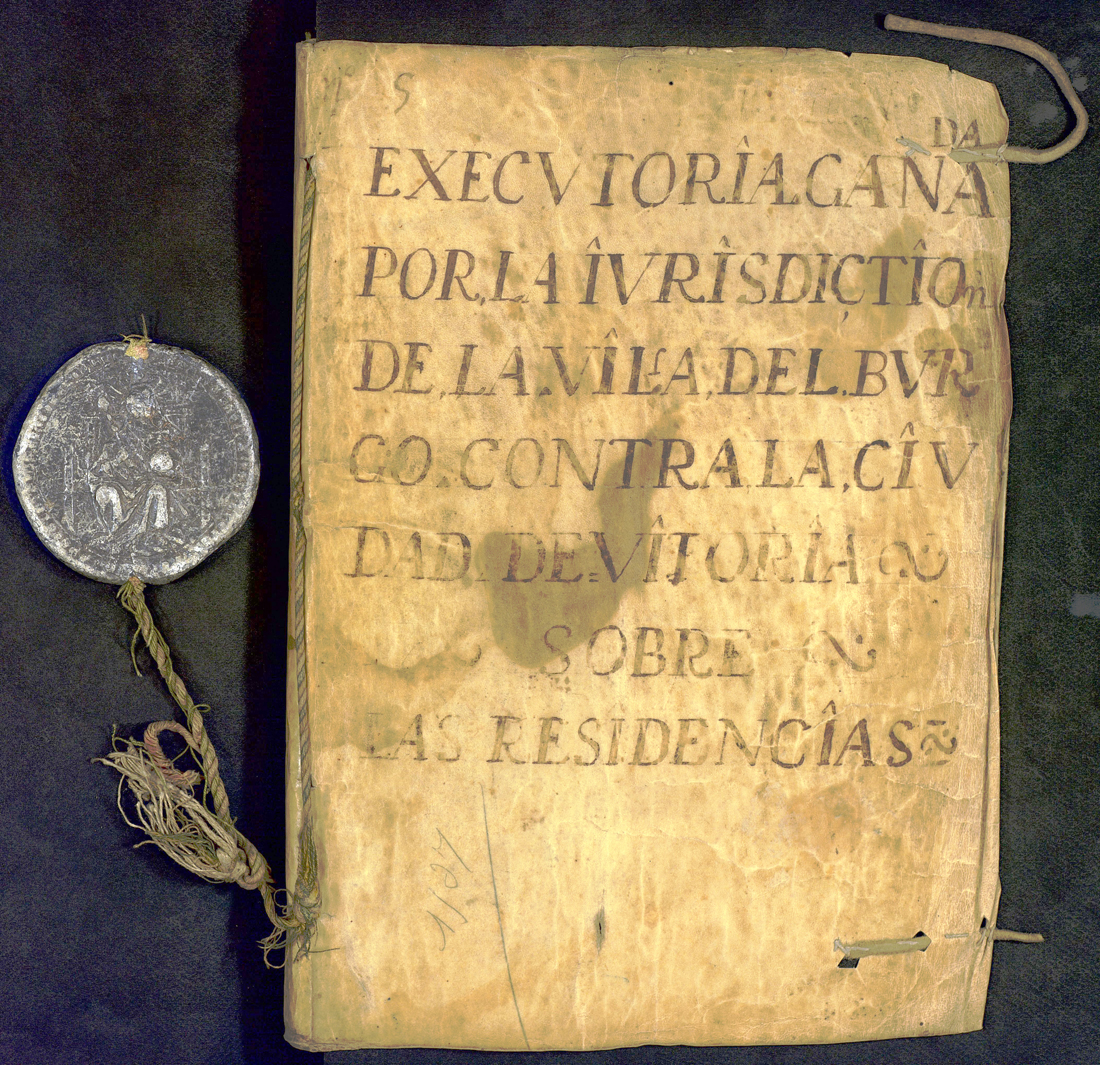 S
DA
EXECVTORÎA,GANA
POR,LA ÎVRÎSDIÇTÎOn
DE,LA,VÎLLA,DEL,BVR
GO,CONTRA,LA,CÎV
DAD,DE=VÎTORÎA
SOBRE
LAS RESIDENCÎAS